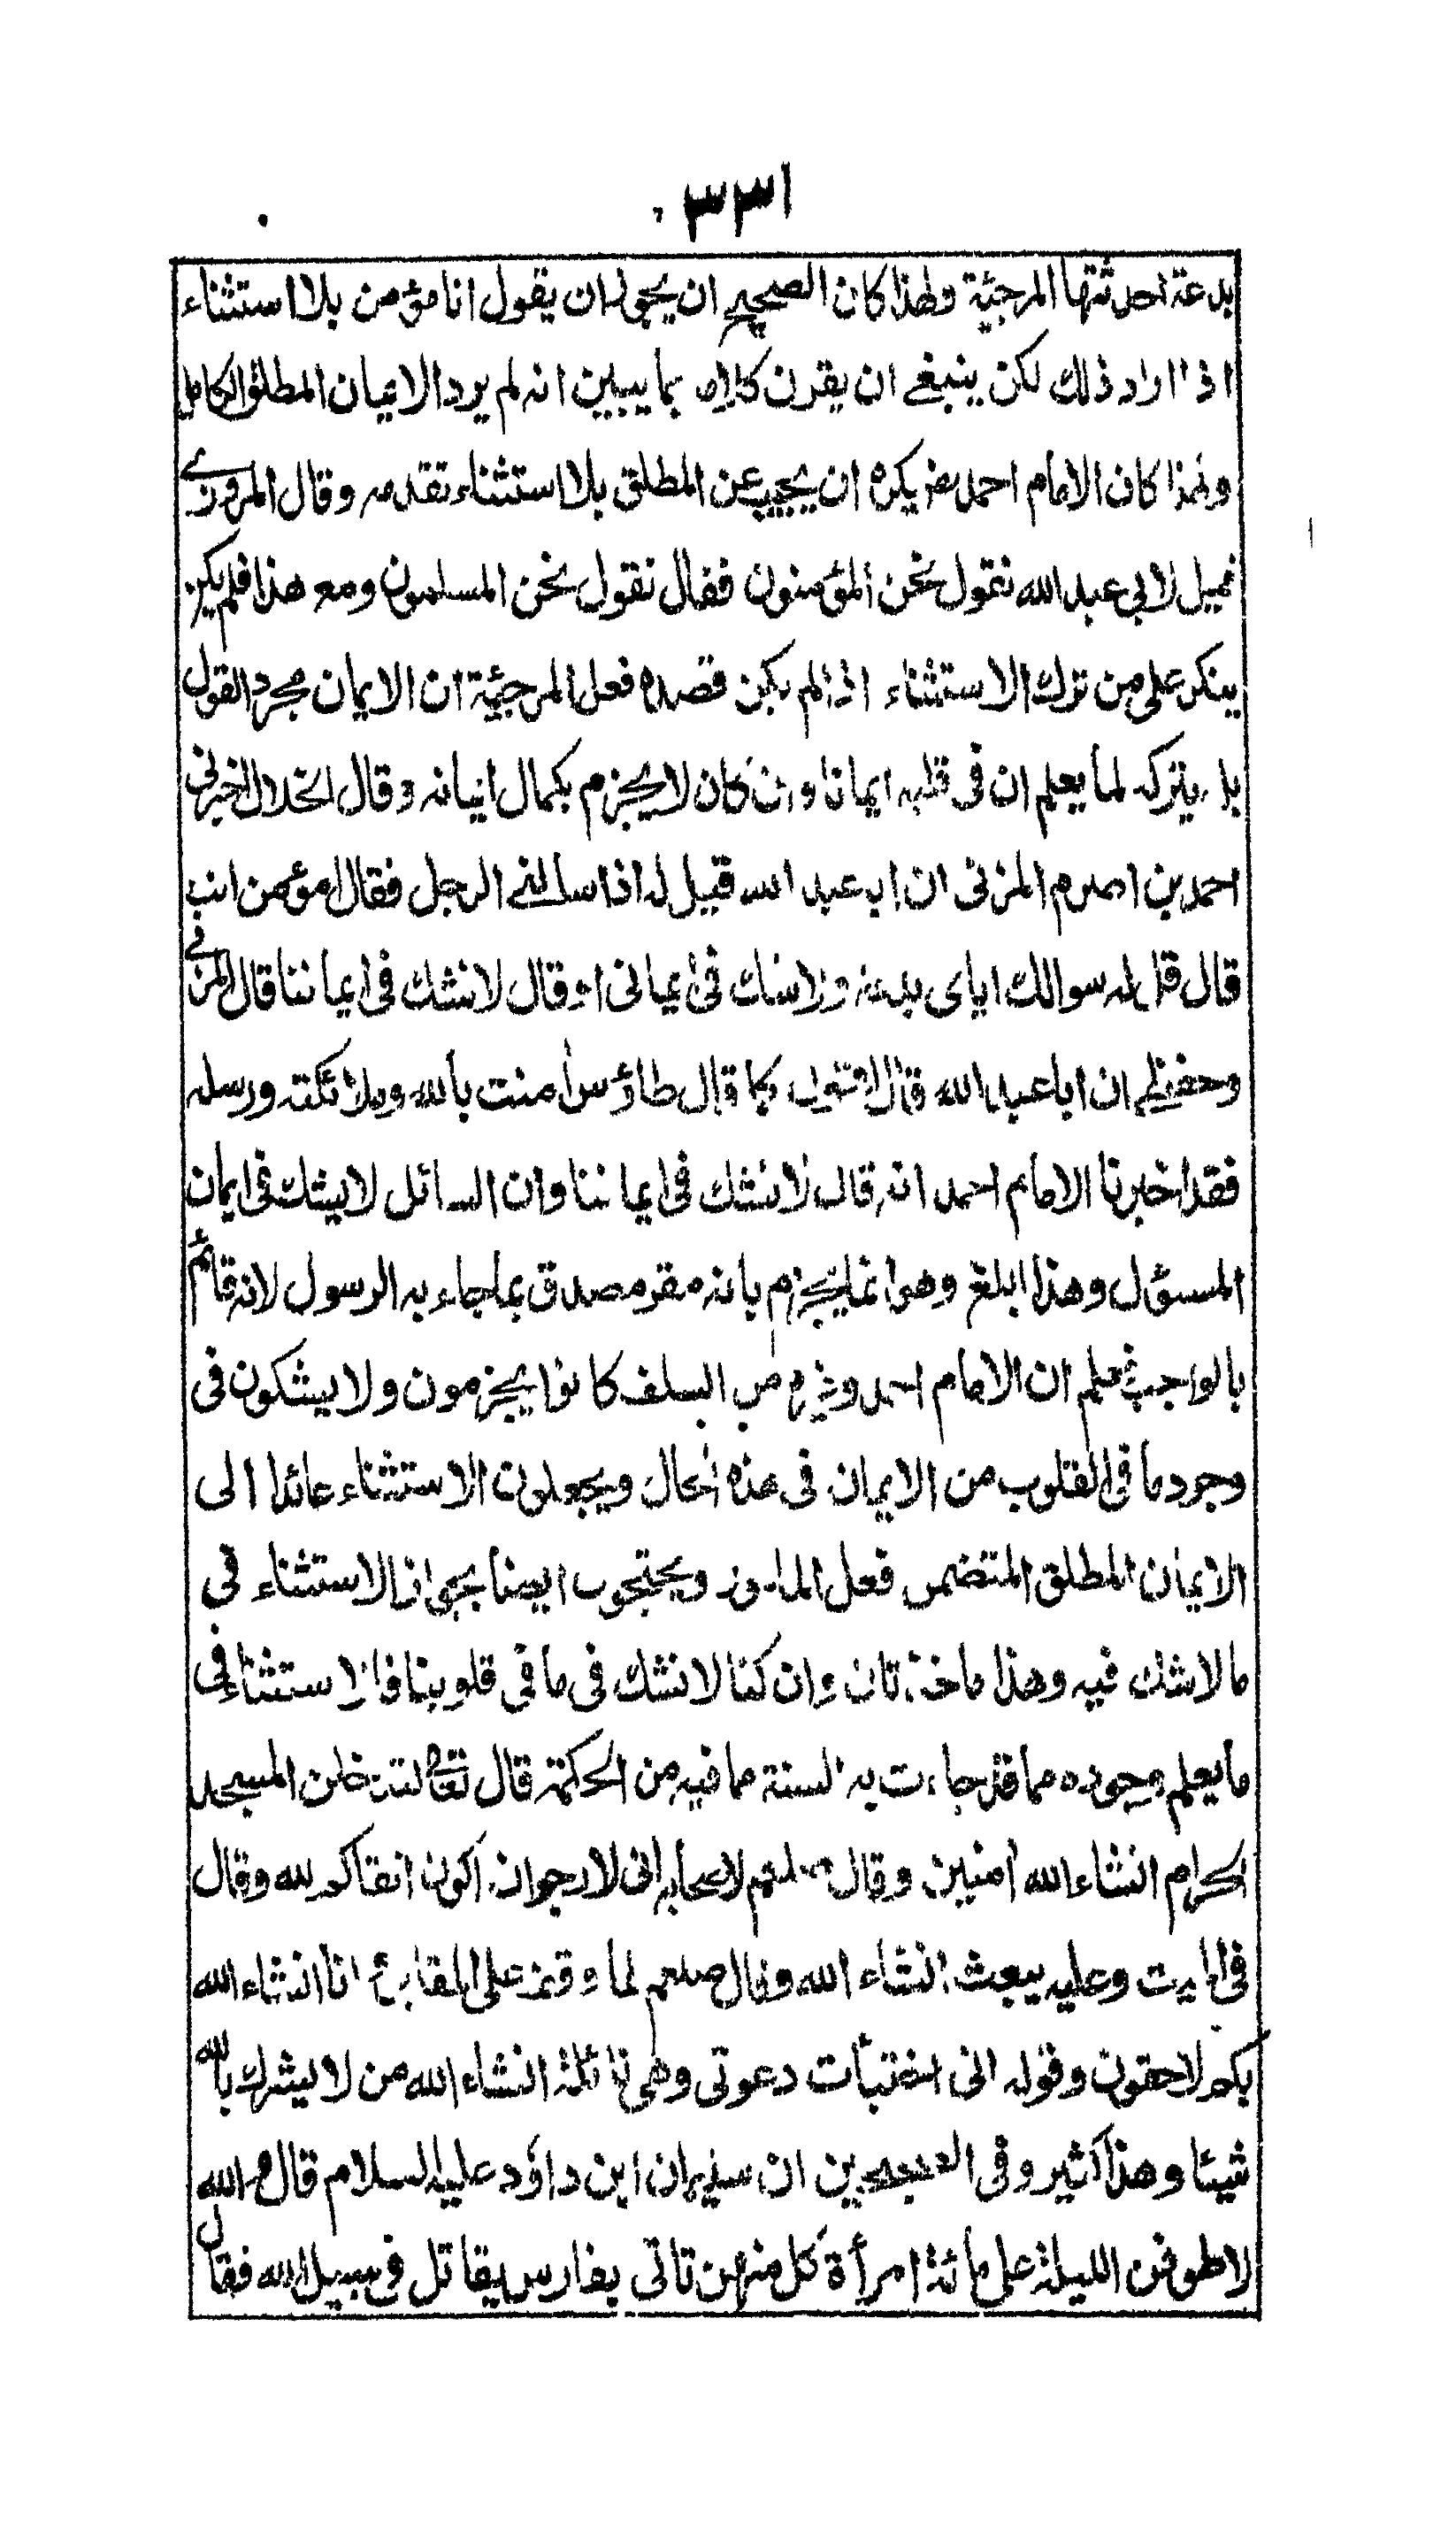 ١٣٣
بدعة احدثتها المرجئة ولهذا كان الصحيح ان يجوز ان يقول انا مؤمن بلا استثناء
اذا اراد ذلك لكن ينبغي ان يقرن كلامه بما يبين انه لم يرد الايمان المطلق الكامل
ولهذا كان الامام احمد رض يكره ان يجيب عن المطلق بلا استثناء تقدمه وقال المروزي
قيل لابي عبد الله نقول نحن المؤمنون فقال نقول نحن المسلمون ومع هذا فلم يكن
ينكر على من ترك الاستثناء اذا لم يكن قصده فعل المرجئة ان الايمان مجرد القول
بل يتركه لما يعلم ان في قلبه ايمانا وان كان لا يجزم بكمال ايمانه وقال الخلال اخبرني
احمد بن اصرم المزني ان ابا عبد الله قيل له اذا سالني الرجل فقال امؤمن انت
قال قل له سوالك اياى بدعة ولا شك في ايماني او قال لانشك في ايماننا قال المزني
وحفظي ان ابا عبد الله قال اقول كما قال طاؤس امنت بالله وملائكته ورسله
فقد اخبرنا الامام احمد انه قال لا نشك في ايماننا وان السائل لا يشك في ايمان
المسؤل وهذا ابلغ وهو انما يجزم بانه مقر مصدق بما جاء به الرسول لانه قائم
بالواجب فعلم ان الامام احمد وغيره من السلف كانوا يجزمون ولا يشكون في
وجود ما في القلوب من الايمان في هذه الحال ويجعلون الاستثناء عائدا الى
الايمان المطلق المتضمن فعل المامور ويحتجون ايضا بجواز الاستثناء في
ما لا شك فيه وهذا ماخذ ثان وان كنا لا نشك في ما في قلوبنا فالاستثناء في
ما يعلم وجوده مما قد جاءت به السنة مما فيه من الحكمة قال تعالى لتدخلن المسجد
الحرام انشاء الله امنين وقال صلعم لاصحابه اني لارجو ان اكون اتقاكم لله وقال
في الميت وعليه يبعث انشاء الله وقال صلعم لما وقف على المقابر انا انشاء الله
بكم لاحقون وقوله اني اختبأت دعوتي وهي نائلة انشاء الله من لا يشرك بالله
شيئا وهذا كثير وفي الصحيحين ان سليمان ابن داؤد عليه السلام قال والله
لاطوفن الليلة على مائة امرأة كل منهن تاتي بفارس يقاتل في سبيل الله فقال